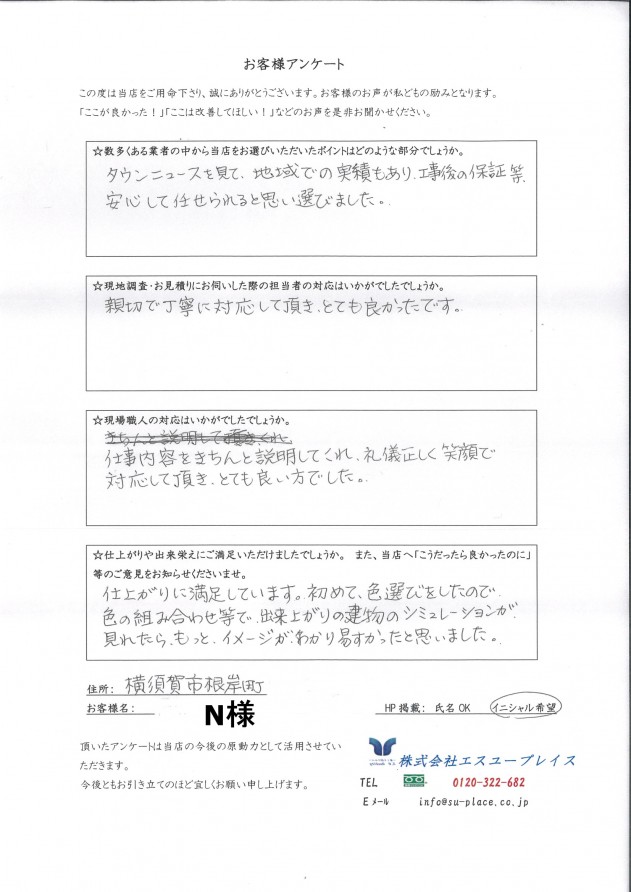 お客様アンケート
この度は当店をご用命下さり、誠にありがとうございます。お客様のお声が私どもの励みとなります。
「ここが良かった！」「ここは改善してほしい！」などのお声を是非お聞かせください。
☆数多くある業者の中から当店をお選びいただいたポイントはどのような部分でしょうか。
タウンニュースを見て、地域での実績もあり、工事後の保証等、
安心して任せられると思い選びました。
☆現地調査・お見積りにお伺いした際の担当者の対応はいかがでしたでしょうか。
親切で丁寧に対応して頂き、とても良かったです。
☆現場職人の対応はいかがでしたでしょうか。
きちんと説明して頂き、くれ、
仕事内容をきちんと説明してくれ、礼儀正しく笑顔で
対応して頂き、とても良い方でした。
☆仕上がりや出来栄えにご満足いただけましたでしょうか。 また、当店へ「こうだったら良かったのに」
等のご意見をお知らせくださいませ。
仕上がりに満足しています。初めて、色選びをしたので、
色の組み合わせ等で、出来上がりの建物のシミュレーションが、
見れたら、もっと、イメージがわかり易すかったと思いました。
住所： 横須賀市根岸町
お客様名： N様 HP掲載： 氏名OK イニシャル希望
頂いたアンケートは当店の今後の原動力として活用させてい
ただきます。
今後ともお引き立てのほど宜しくお願い申し上げます。
株式会社エスユープレイス
TEL 0120-322-682
Eメール info@su-place.co.jp